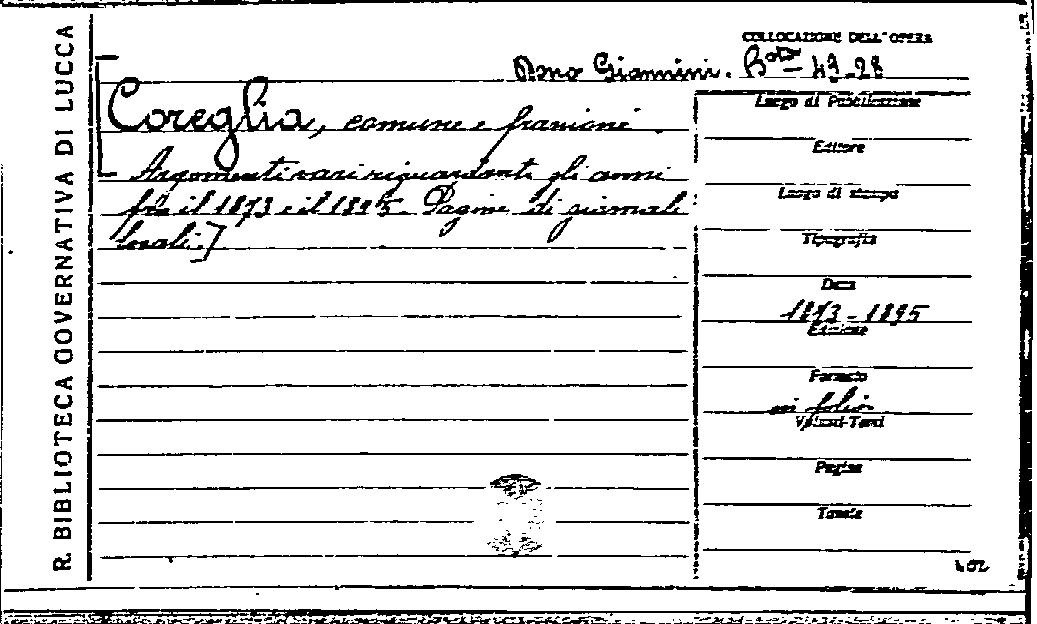 R. BIBLIOTECA GOVERNATIVA DI LUCCA
COLLOCAZIONE DELL'OPERA
Dono Giannini. Bta 49-28
[Coreglia, comune e frazioni.
Argomenti vari riguardanti gli anni
fra il 1873 e il 1895. Pagine di giornali
locali.]
Luogo di Pubblicazione
Editore
Luogo di stampa
Tipografia
Data
1873-1895
Edizione
Formato
in folio
Volumi-Tomi
Pagine
Tavole